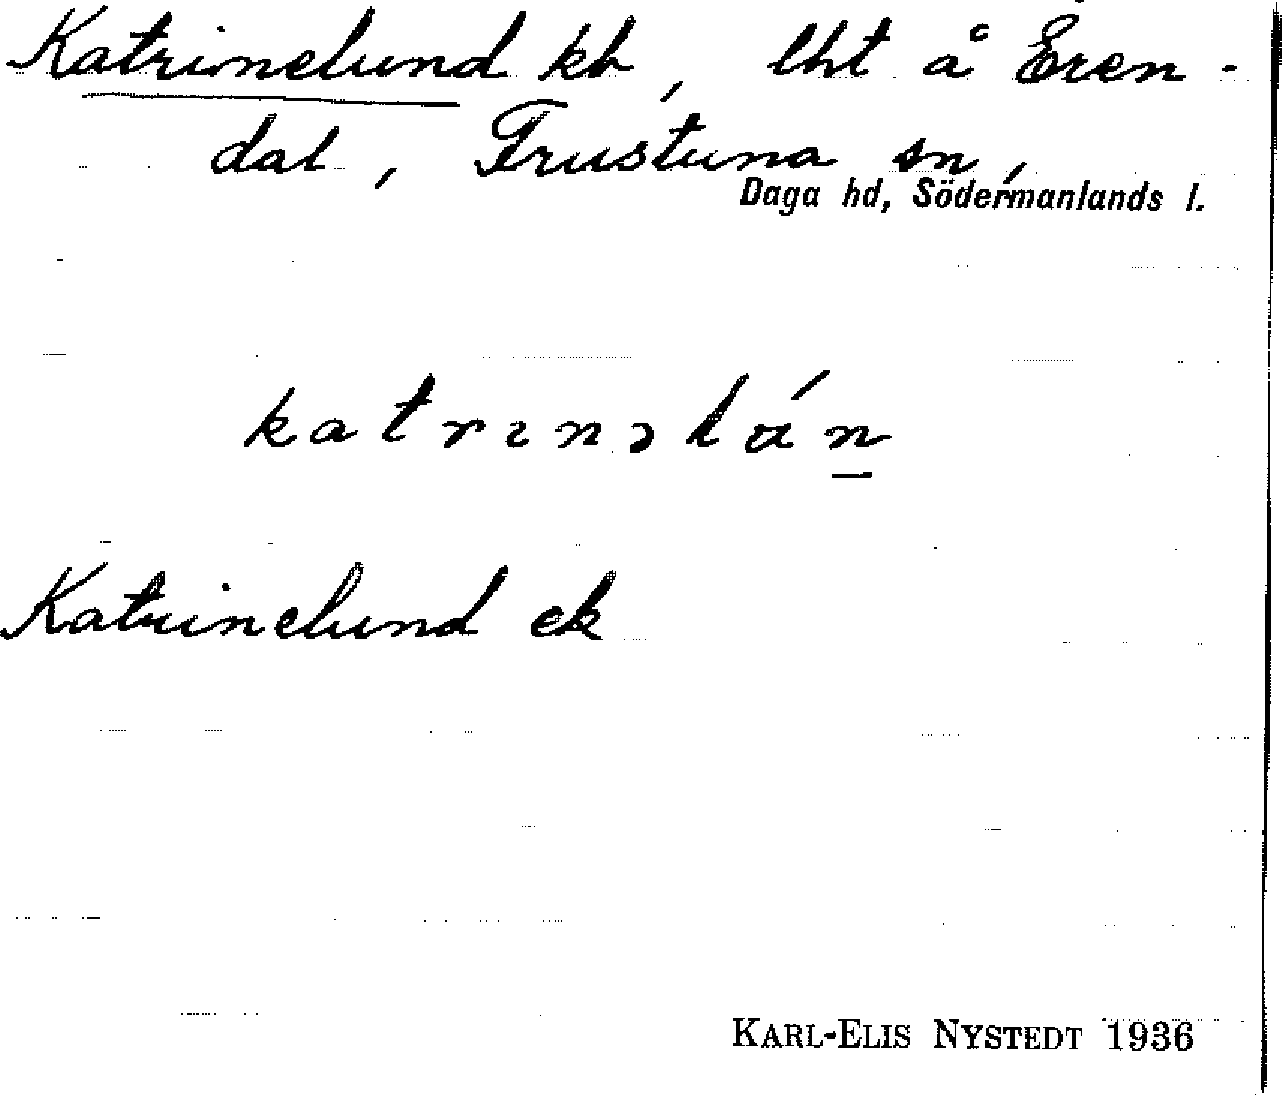 Katrinelund kb, lht å Eren-
dal, Frustuna sn,
Daga hd, Södermanlands l.
katrinəlún
Katrinelund ek
KARL-ELIS NYSTEDT 1936